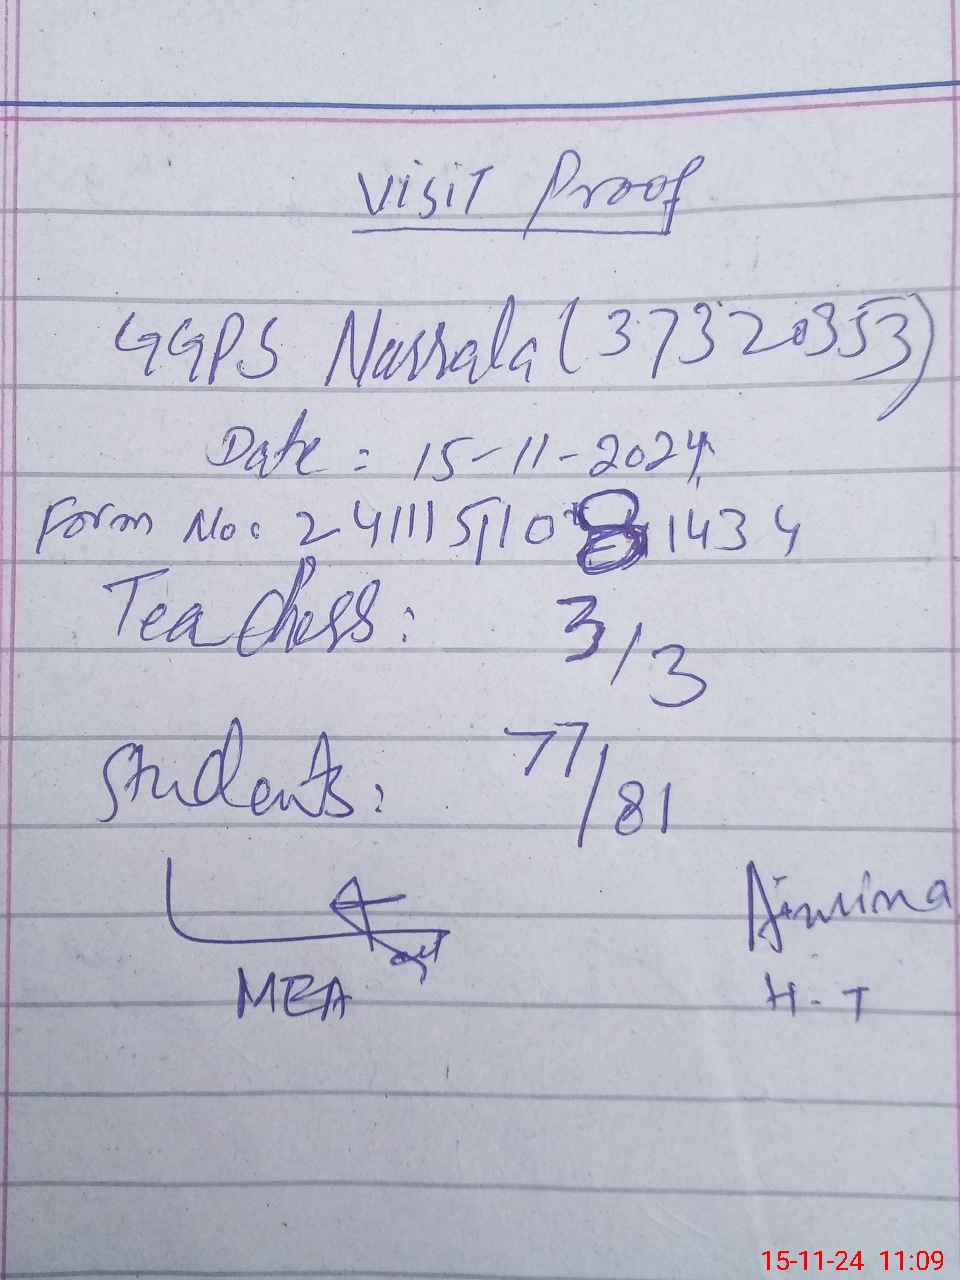 Visit Proof
GGPS Narrala (37320353)
Date : 15-11-2024
Form No: 24111511081434
Teachers : 3/3
Students : 77/81
MEA
Amina
H-T
15-11-24 11:09